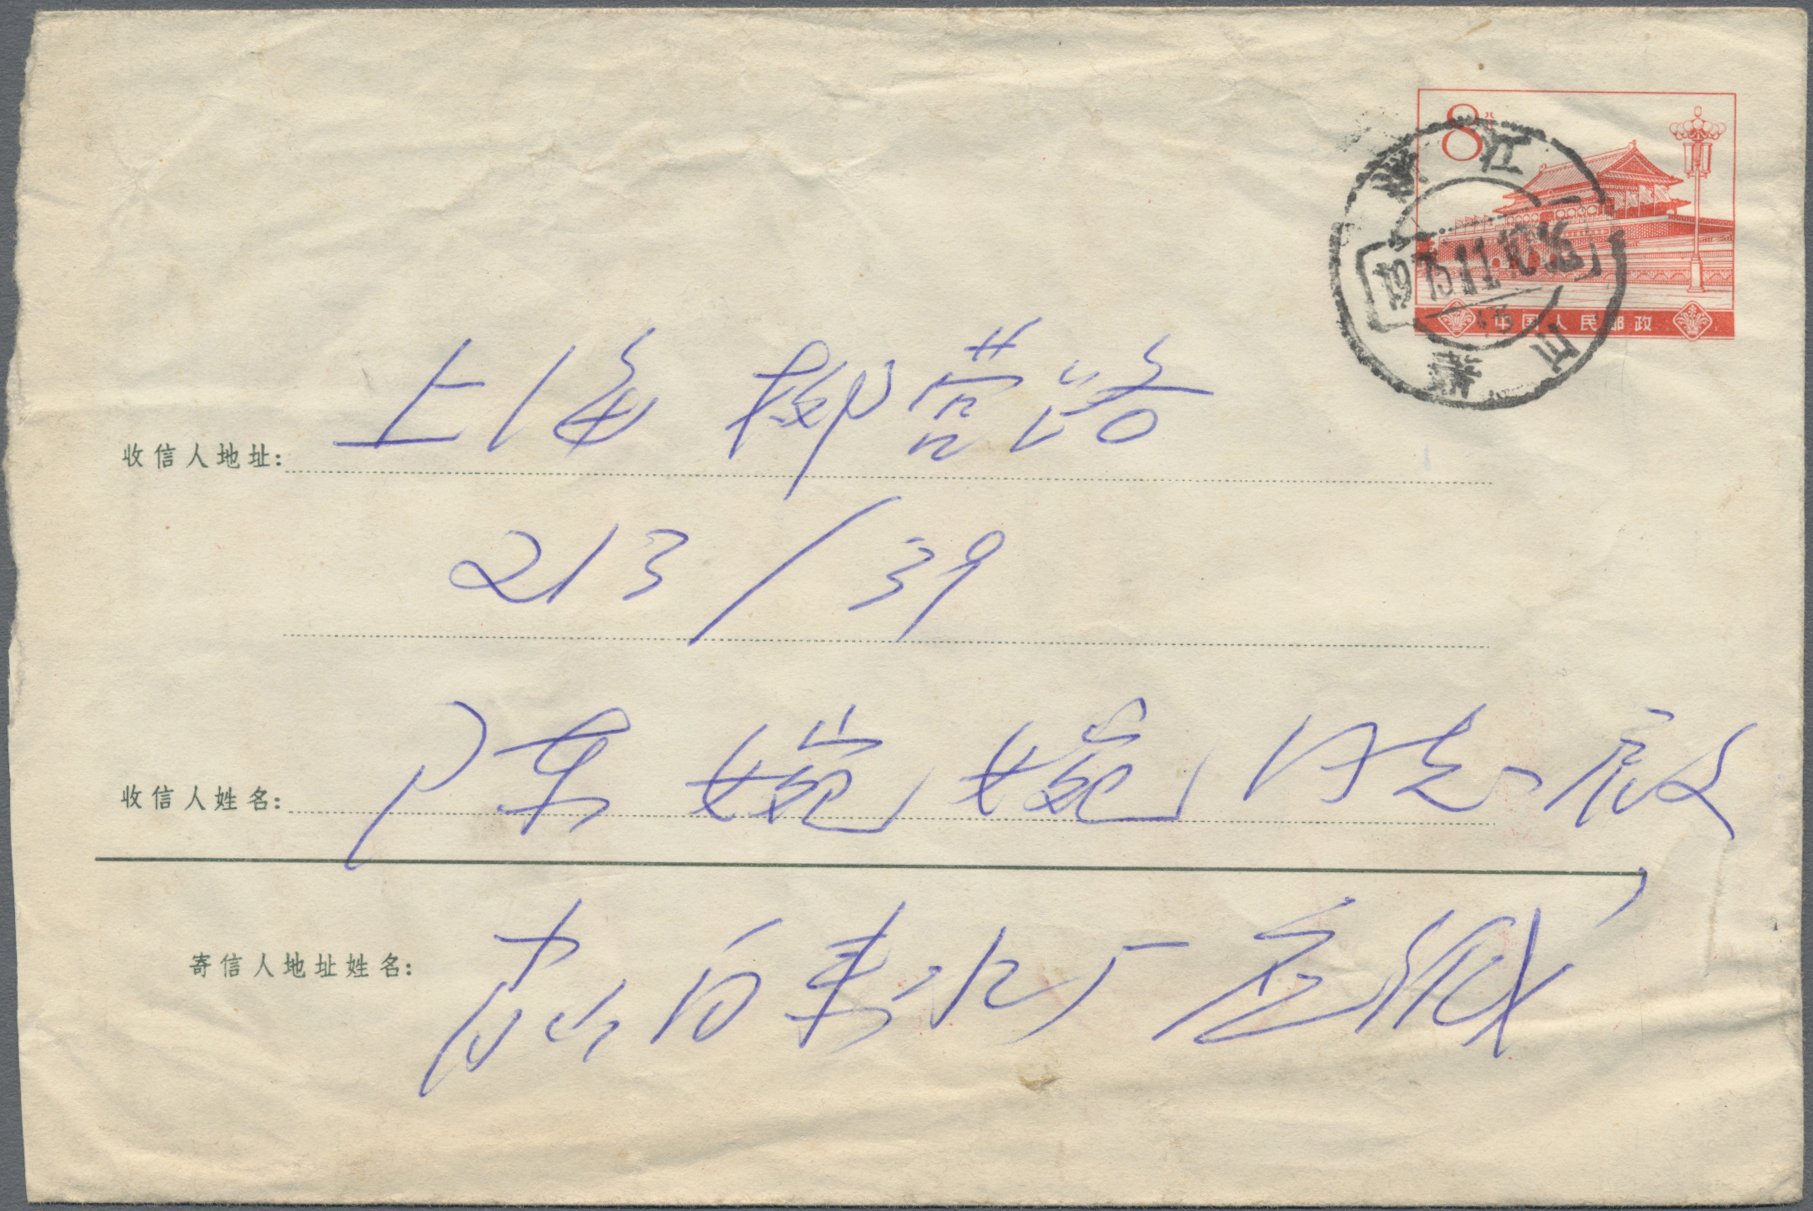 8分
江
1975.11.10.16
中国人民邮政
上海 柳营路
收信人地址:
213/39
陈婉婉同志 启
收信人姓名:
寄信人地址姓名:
自来水厂